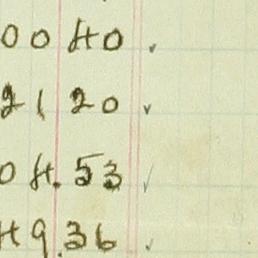 0040 ✓
2120 ✓
04.53 ✓
49.36 ✓